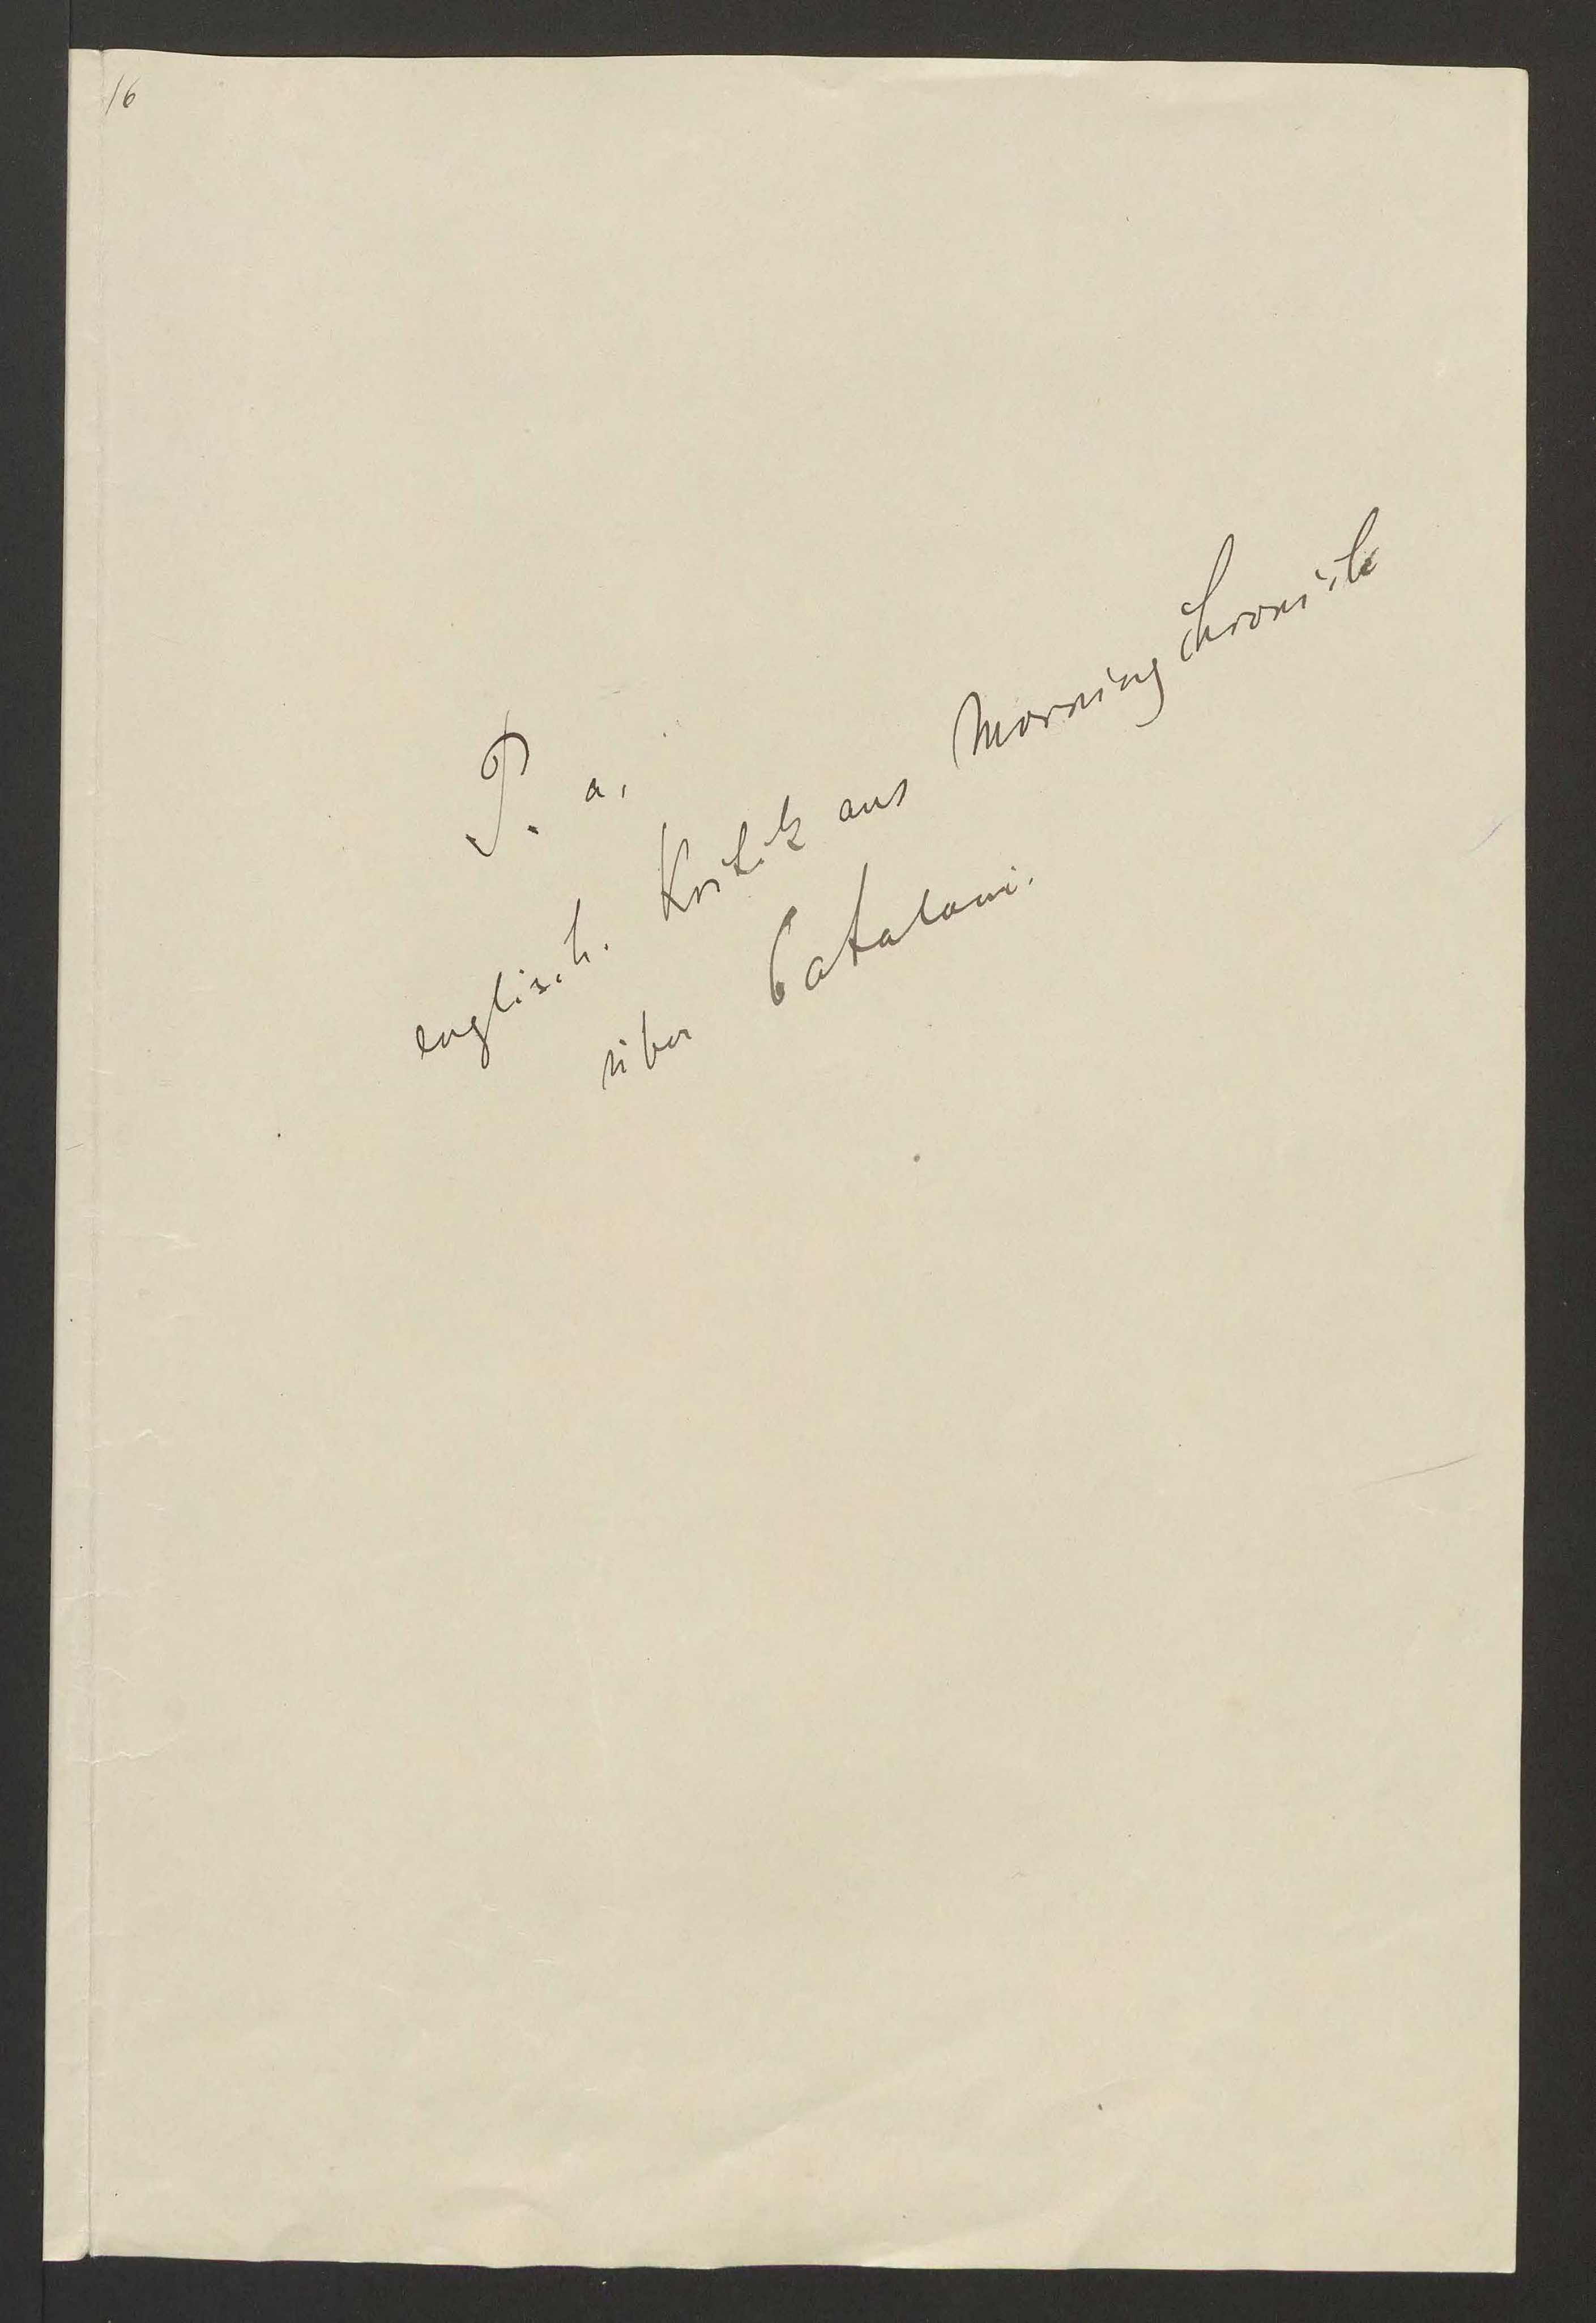 16
P. a.
englisch. Kritik aus Morning Chronicle
über Catalani.